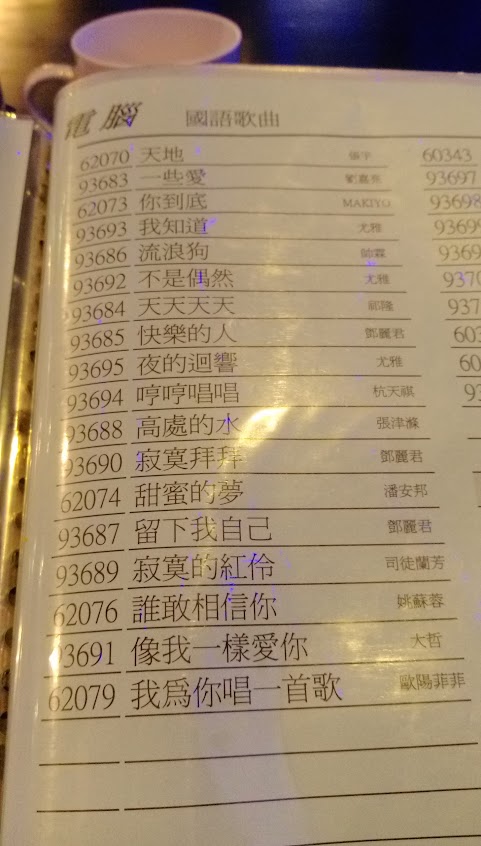 電腦 國語歌曲
62070 天地 張宇 60343
93683 一些愛 劉嘉亮 93697
62073 你到底 MAKIYO 93698
93693 我知道 尤雅
93686 流浪狗
93692 不是偶然 尤雅
93684 天天天天 邰隆
93685 快樂的人 鄧麗君
93695 夜的迴響 尤雅
93694 哼哼唱唱 杭天祺
93688 高處的水 張津滌
93690 寂寞拜拜 鄧麗君
62074 甜蜜的夢 潘安邦
93687 留下我自己 鄧麗君
93689 寂寞的紅伶 司徒蘭芳
62076 誰敢相信你 姚蘇蓉
93691 像我一樣愛你 大哲
62079 我為你唱一首歌 歐陽菲菲